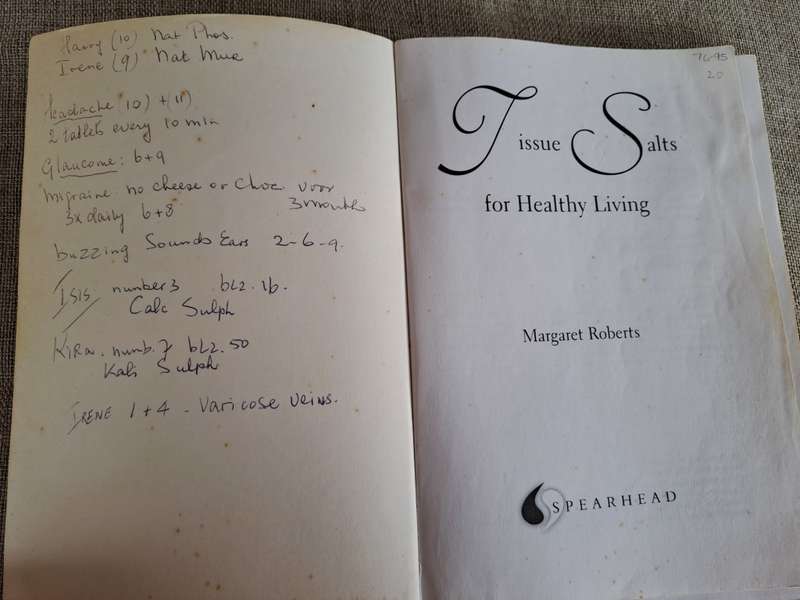 Harry (10) Nat Phos.
Irene (9) Nat Mur
Headache (10) + (11)
2 tablets every 10 min
Glaucome: 6+9
migraine: no cheese or Choc voor
3 months
3x daily 6+8
buzzing Sounds Ears 2-6-9.
ISIS number 3 blz. 16.
Calc Sulph
KIRA. numb. 7 blz. 50
Kali Sulph
IRENE 1+4 - Varicose veins.
76-95
20
Tissue Salts
for Healthy Living
Margaret Roberts
SPEARHEAD